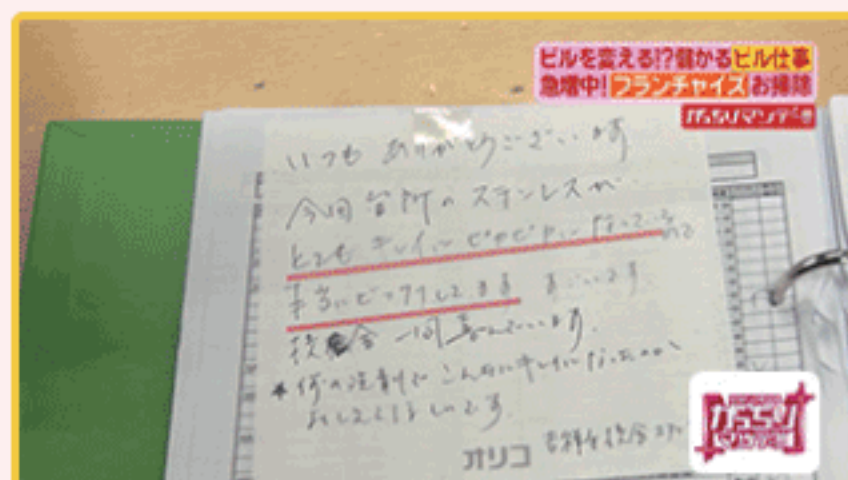 ビルを変える!?儲かるビル仕事
急増中!フランチャイズお掃除
がっちりマンデー!!
いつも ありがとうございます
今回 台所の ステンレスが
とてもキレイに ピカピカに なっているので
本当にビックリしてます すごいです
一同 喜んでいます。
*何の洗剤で こんなにキレイになったのか、
おしえてほしいです。
オリコ
がっちり
マンデー!!